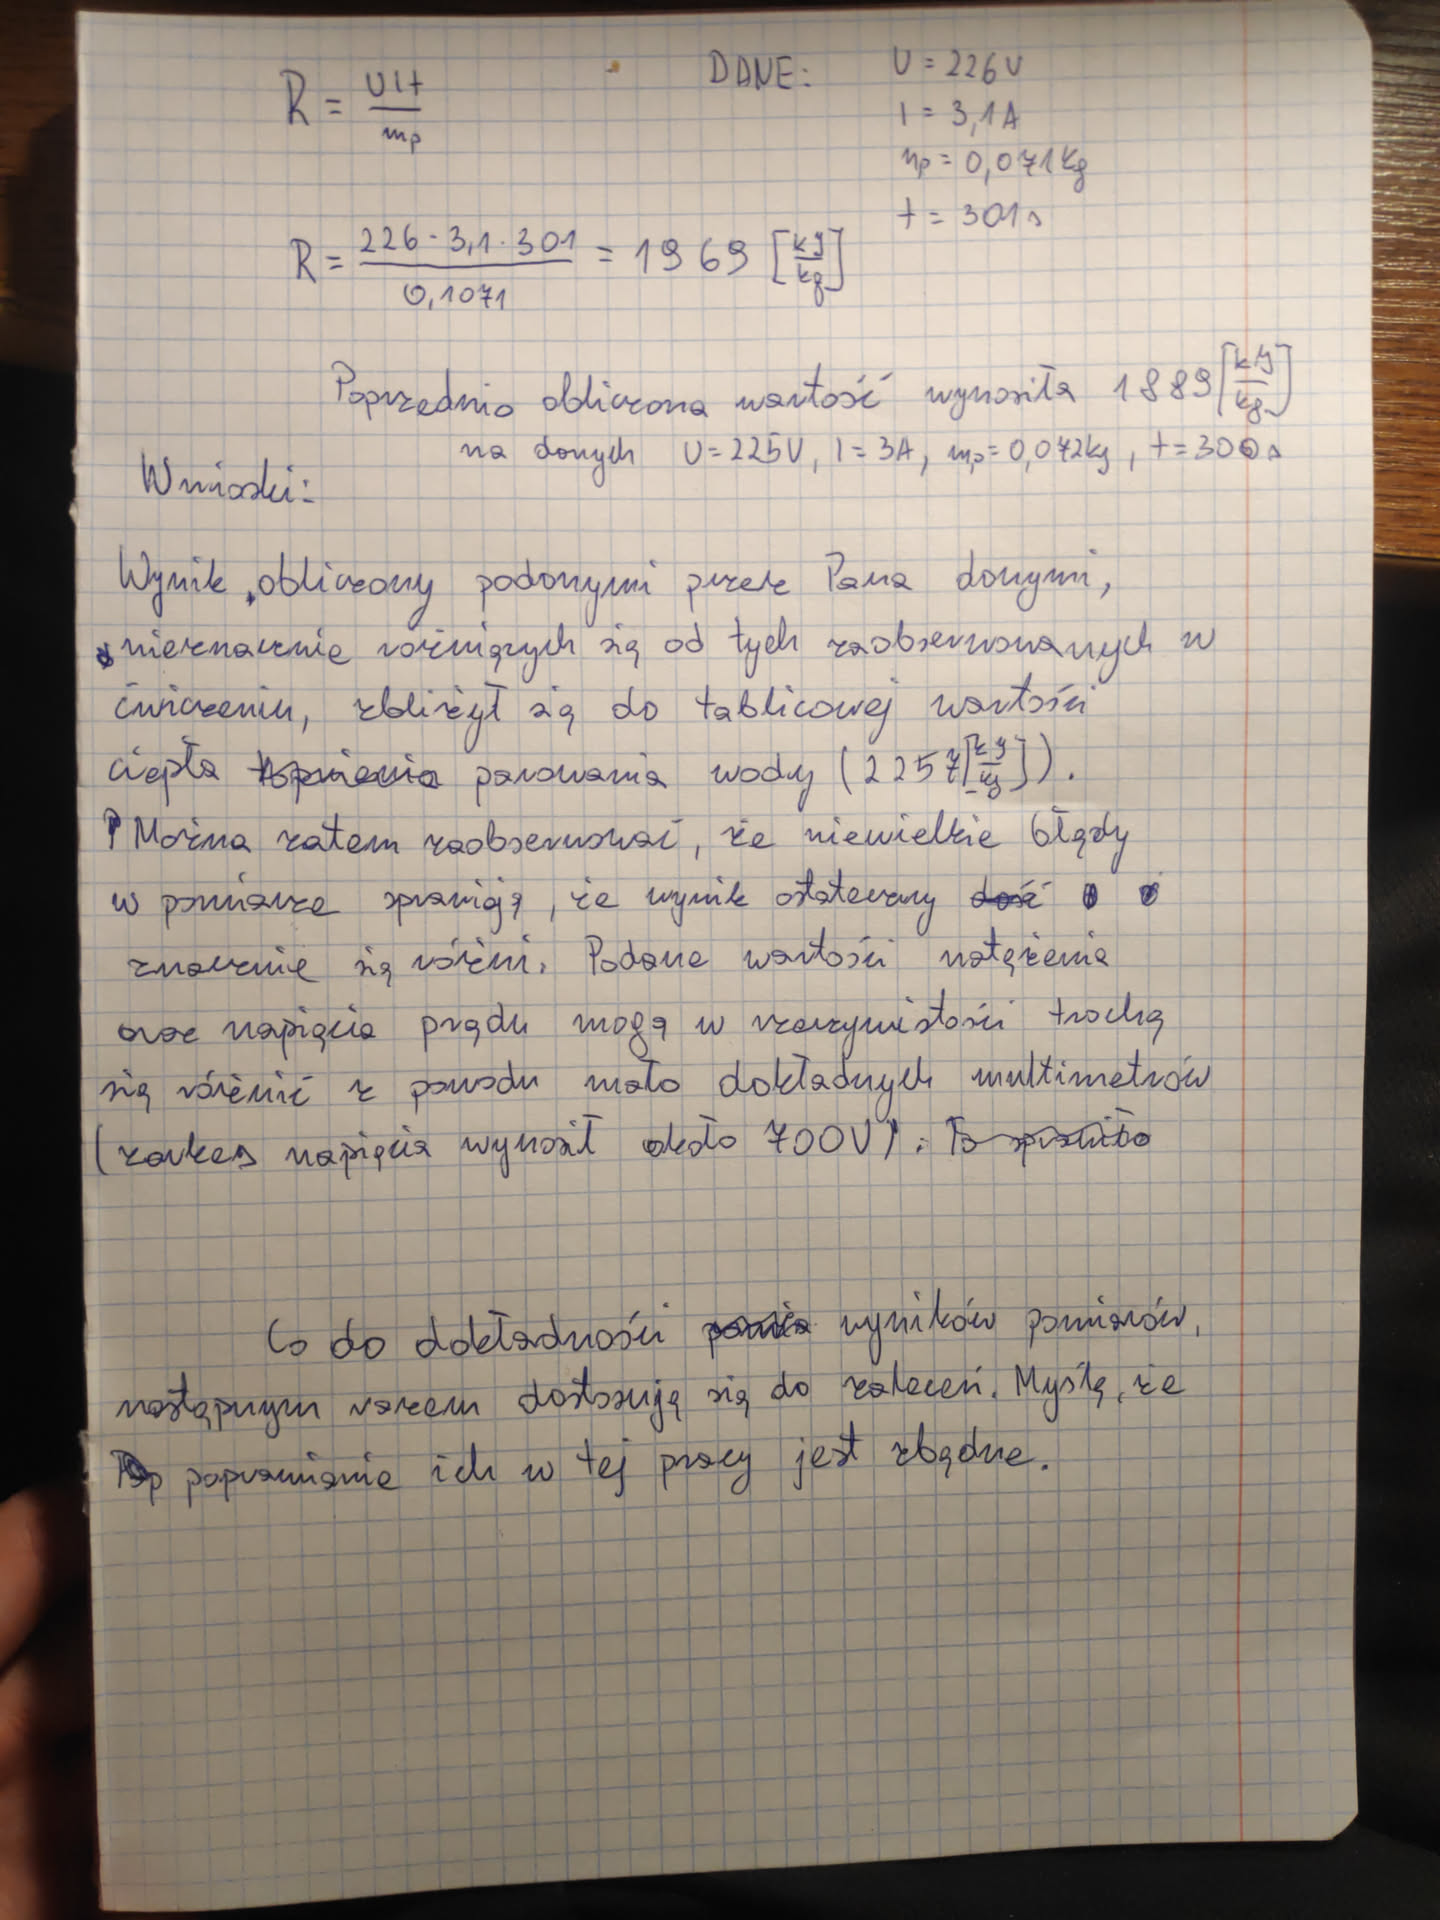 R = UIt / mp
DANE:
U = 226V
I = 3,1A
mp = 0,071kg
t = 301s
R = 226 · 3,1 · 301 / 0,1071 = 1969 [kJ/kg]
Poprzednio obliczona wartość wynosiła 1889 [kJ/kg]
na danych U=225V, I=3A, mp=0,072kg, t=300s
Wnioski:
Wynik obliczony podanymi przez Pana danymi,
nieznacznie różniących się od tych zaobserwowanych w
ćwiczeniu, zbliżył się do tablicowej wartości
ciepła topnienia parowania wody (2257 [kJ/kg]).
Można zatem zaobserwować, że niewielkie błędy
w pomiarze sprawiają, że wynik ostateczny dość
znacznie się różni. Podane wartości natężenia
oraz napięcia prądu mogą w rzeczywistości trochę
się różnić z powodu mało dokładnych multimetrów
(zakres napięcia wynosił około 700V). To sprawiło
Co do dokładności wyników pomiarów,
następnym razem dostosuję się do zaleceń. Myślę, że
poprawianie ich w tej pracy jest zbędne.